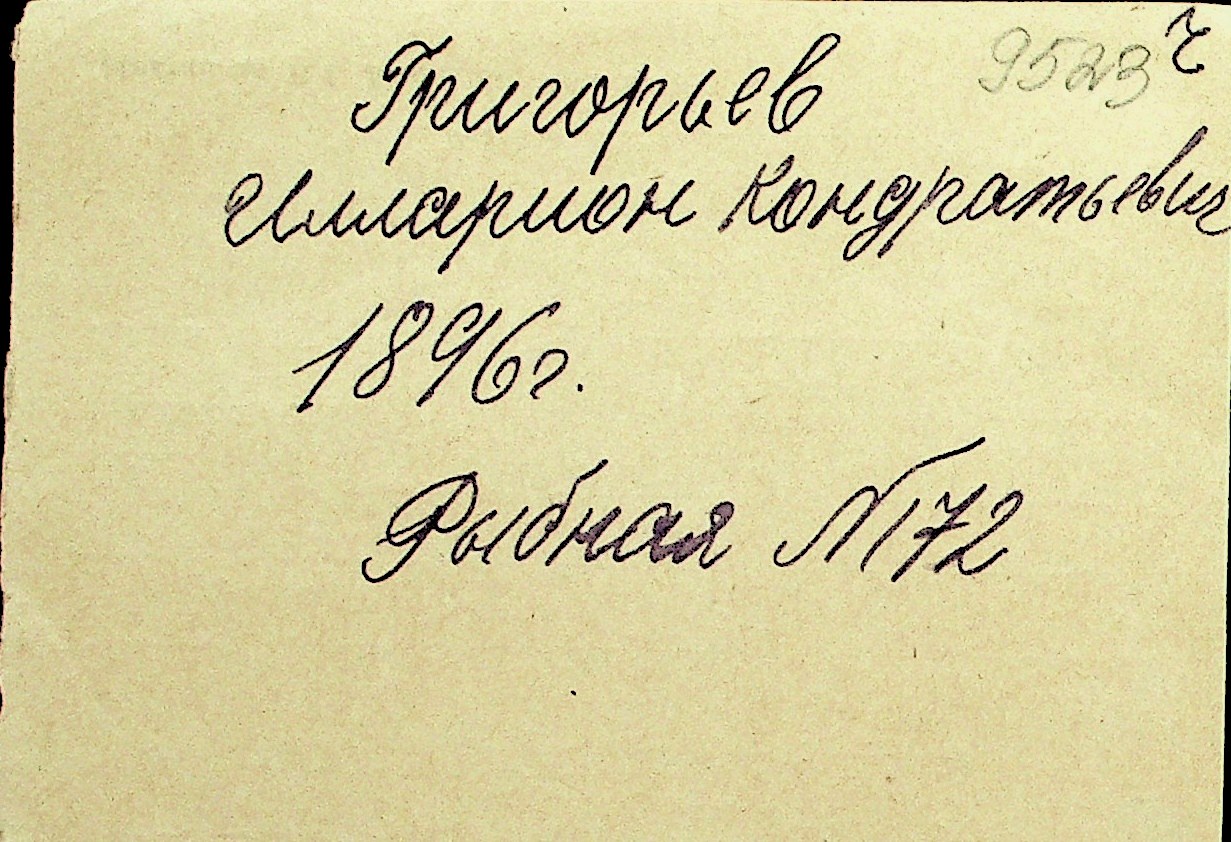 9523 ч
Григорьев
Илларион Кондратьевич
1896г.
Рыбная №72